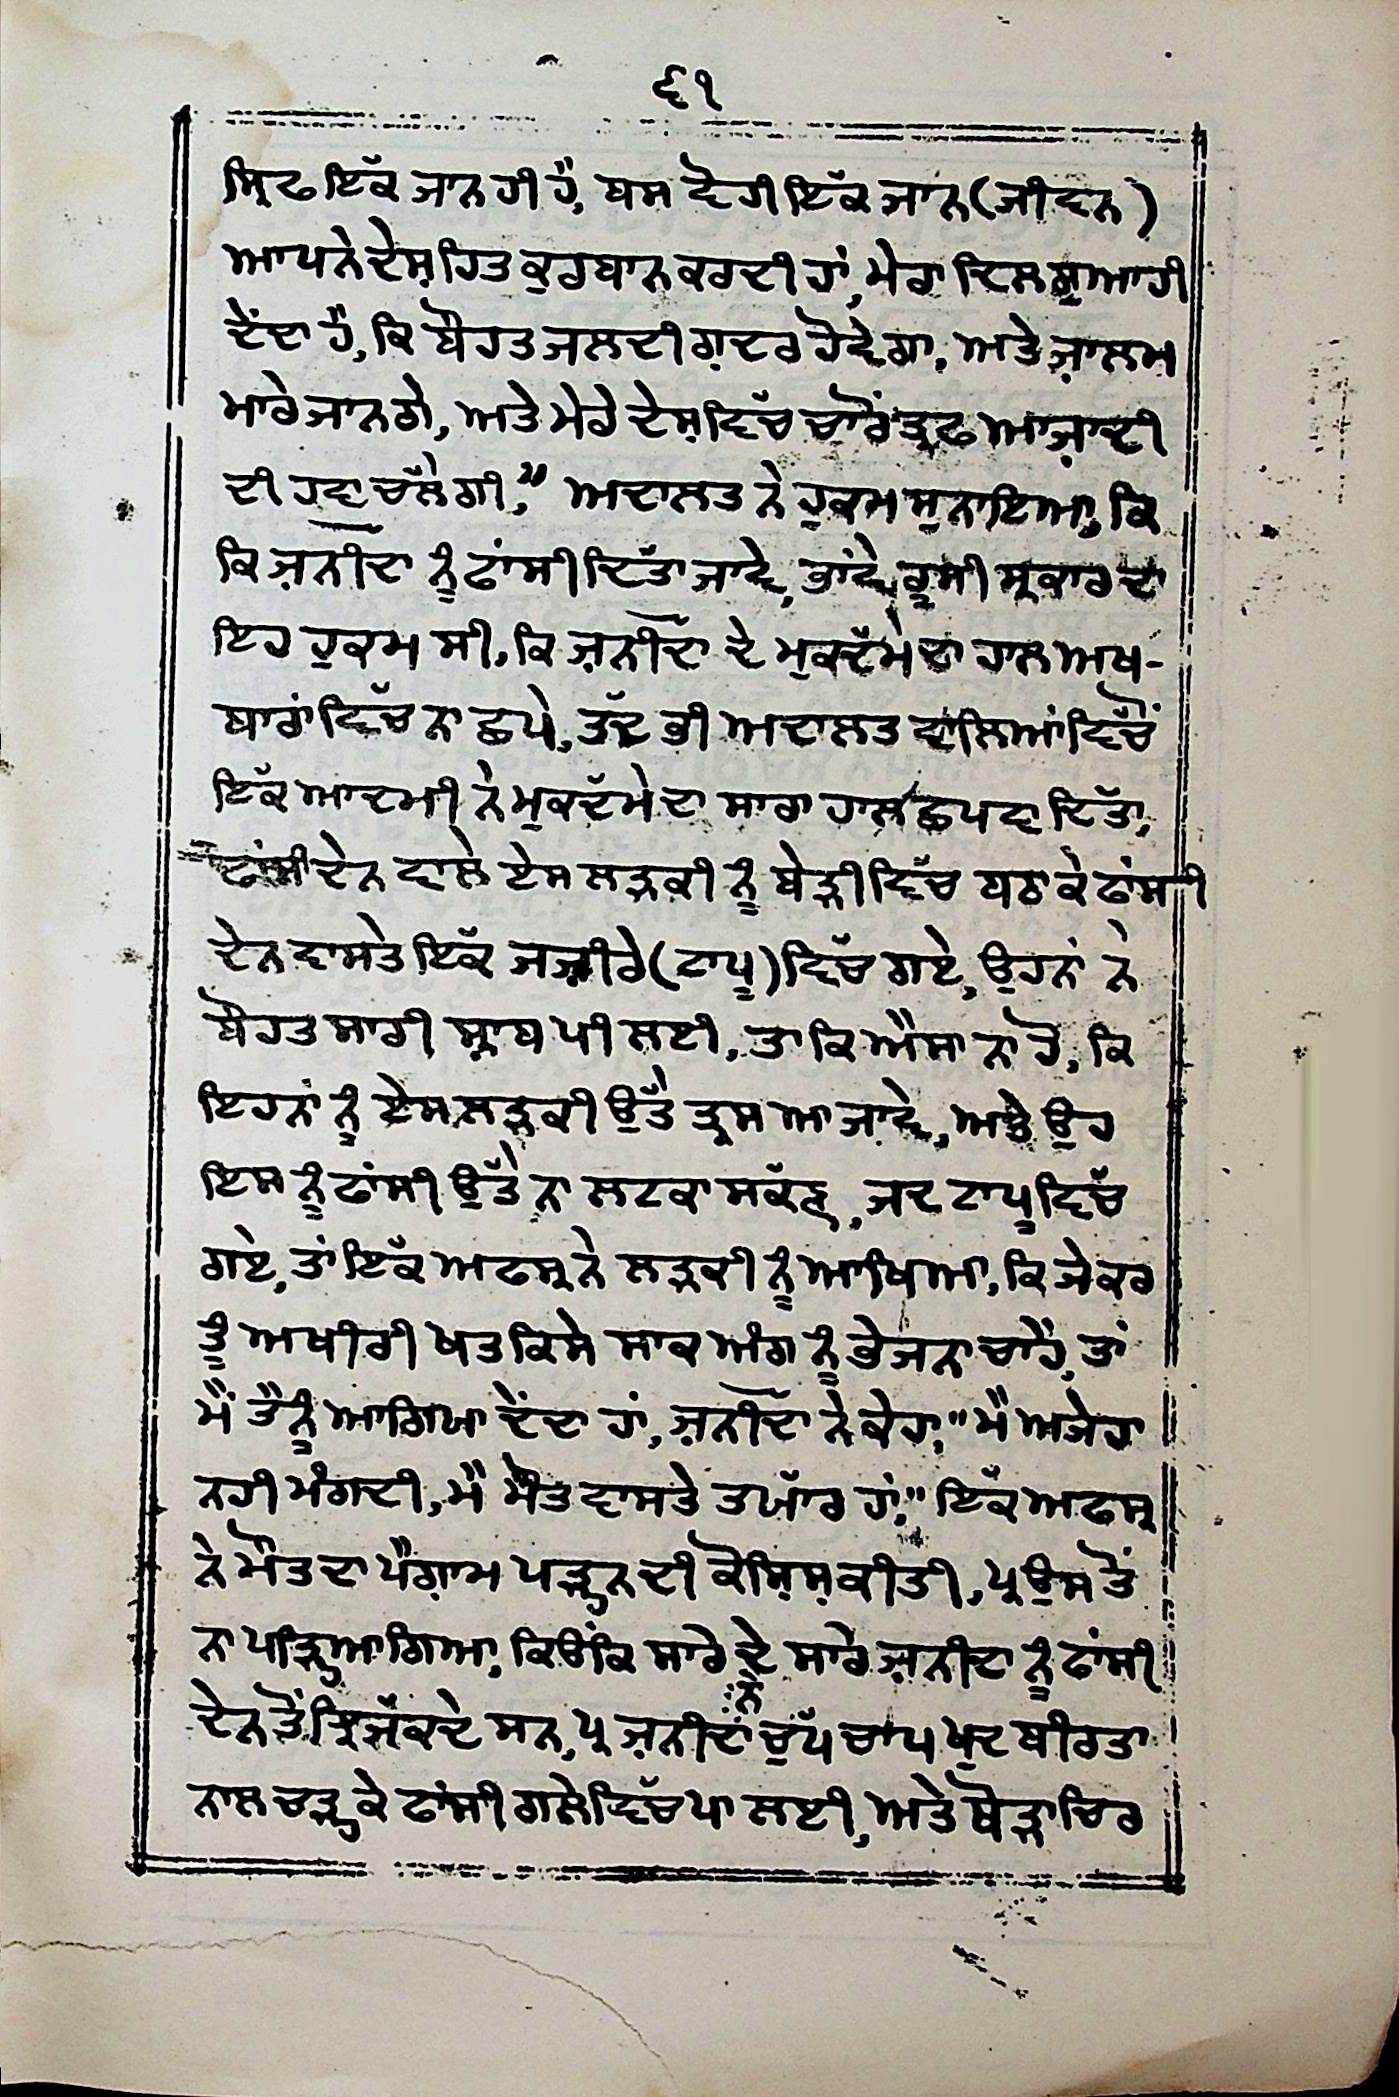 ੬੧
ਸ੍ਰਿਫ ਇੱਕ ਜਾਨ ਹੀ ਹੈ, ਬਸ ਵੋਹੀ ਇੱਕ ਜਾਨ (ਜੀਵਨ)
ਆਪਨੇ ਦੇਸ਼ ਹਿਤ ਕੁਰਬਾਨ ਕਰਦੀ ਹਾਂ, ਮੇਰਾ ਦਿਲ ਗੁਆਹੀ
ਦੇਂਦਾ ਹੈ, ਕਿ ਬੌਹਤ ਜਲਦੀ ਗ਼ਦਰ ਹੋਵੇਗਾ, ਅਤੇ ਜ਼ਾਲਮ
ਮਾਰੇ ਜਾਨਗੇ, ਅਤੇ ਮੇਰੇ ਦੇਸ਼ ਵਿੱਚ ਚਾਰੋਂ ਤ੍ਰਫ ਆਜ਼ਾਦੀ
ਦੀ ਹਵਾ ਚੱਲੇਗੀ," ਅਦਾਲਤ ਨੇ ਹੁਕਮ ਸੁਨਾਇਆ, ਕਿ
ਕਿ ਜ਼ਨੀਦਾ ਨੂੰ ਫਾਂਸੀ ਦਿੱਤਾ ਜਾਵੇ, ਭਾਂਵੇ ਰੂਸੀ ਸ੍ਰਕਾਰ ਦਾ
ਇਹ ਹੁਕਮ ਸੀ, ਕਿ ਜ਼ਨੀਦਾ ਦੇ ਮੁਕਦੱਮੇ ਦਾ ਹਾਲ ਅਖ-
ਬਾਰਾਂ ਵਿੱਚ ਨਾ ਛਪੇ, ਤੱਦ ਭੀ ਅਦਾਲਤ ਵਾਲਿਆਂ ਵਿੱਚੋਂ
ਇੱਕ ਆਦਮੀ ਨੇ ਮੁਕਦੱਮੇ ਦਾ ਸਾਰਾ ਹਾਲ ਛਪਵਾ ਦਿੱਤਾ,
ਫਾਂਸੀ ਦੇਨ ਵਾਲੇ ਏਸ ਲੜਕੀ ਨੂੰ ਬੇੜੀ ਵਿੱਚ ਬਠਾਕੇ ਫਾਂਸੀ
ਦੇਨ ਵਾਸਤੇ ਇੱਕ ਜਜ਼ੀਰੇ (ਟਾਪੂ) ਵਿੱਚ ਗਏ, ਉਹਨਾਂ ਨੇ
ਬੌਹਤ ਸਾਰੀ ਸ਼੍ਰਾਬ ਪੀ ਲਈ, ਤਾਕਿ ਐਸਾ ਨਾ ਹੋ, ਕਿ
ਇਹਨਾਂ ਨੂੰ ਏਸ ਲੜਕੀ ਉੱਤੇ ਤ੍ਰਸ ਆ ਜਾਵੇ, ਅਤੇ ਉਹ
ਇਸ ਨੂੰ ਫਾਂਸੀ ਉੱਤੇ ਨਾ ਲਟਕਾ ਸਕੱਣ, ਜਦ ਟਾਪੂ ਵਿੱਚ
ਗਏ, ਤਾਂ ਇੱਕ ਅਫਸ੍ਰ ਨੇ ਲੜਕੀ ਨੂੰ ਆਖਿਆ, ਕਿ ਜੇਕਰ
ਤੂੰ ਅਖੀਰੀ ਖਤ ਕਿਸੇ ਸਾਕ ਅੰਗ ਨੂੰ ਭੇਜਨਾ ਚਾਹੇਂ, ਤਾਂ
ਮੈਂ ਤੈਨੂੰ ਆਗਿਯਾ ਦੇਂਦਾ ਹਾਂ, ਜ਼ਨੀਦਾ ਨੇ ਕੇਹਾ, "ਮੈਂ ਅਜੇਹਾ
ਨਹੀ ਮੰਗਦੀ, ਮੈਂ ਮੌਤ ਵਾਸਤੇ ਤਯਾੱਰ ਹਾਂ," ਇੱਕ ਅਫਸ੍ਰ
ਨੇ ਮੌਤ ਦਾ ਪੈਗ਼ਾਮ ਪੜ੍ਹਨ ਦੀ ਕੋਸ਼ਿਸ਼ ਕੀਤੀ, ਪ੍ਰ ਉਸ ਤੋਂ
ਨਾ ਪੜ੍ਹਿਆ ਗਿਆ, ਕਿਉਂਕਿ ਸਾਰੇ ਦੇ ਸਾਰੇ ਜ਼ਨੀਦਾ ਨੂੰ ਫਾਂਸੀ
ਦੇਨ ਤੋਂ ਝਿਜੱਕਦੇ ਸਨ, ਪ੍ਰ ਜ਼ਨੀਦਾ ਨੇ ਚੁੱਪ ਚਾਪ ਖੁਦ ਬੀਰਤਾ
ਨਾਲ ਚੜ੍ਹਕੇ ਫਾਂਸੀ ਗਲੇ ਵਿੱਚ ਪਾ ਲਈ, ਅਤੇ ਥੋੜਾ ਚਿਰ